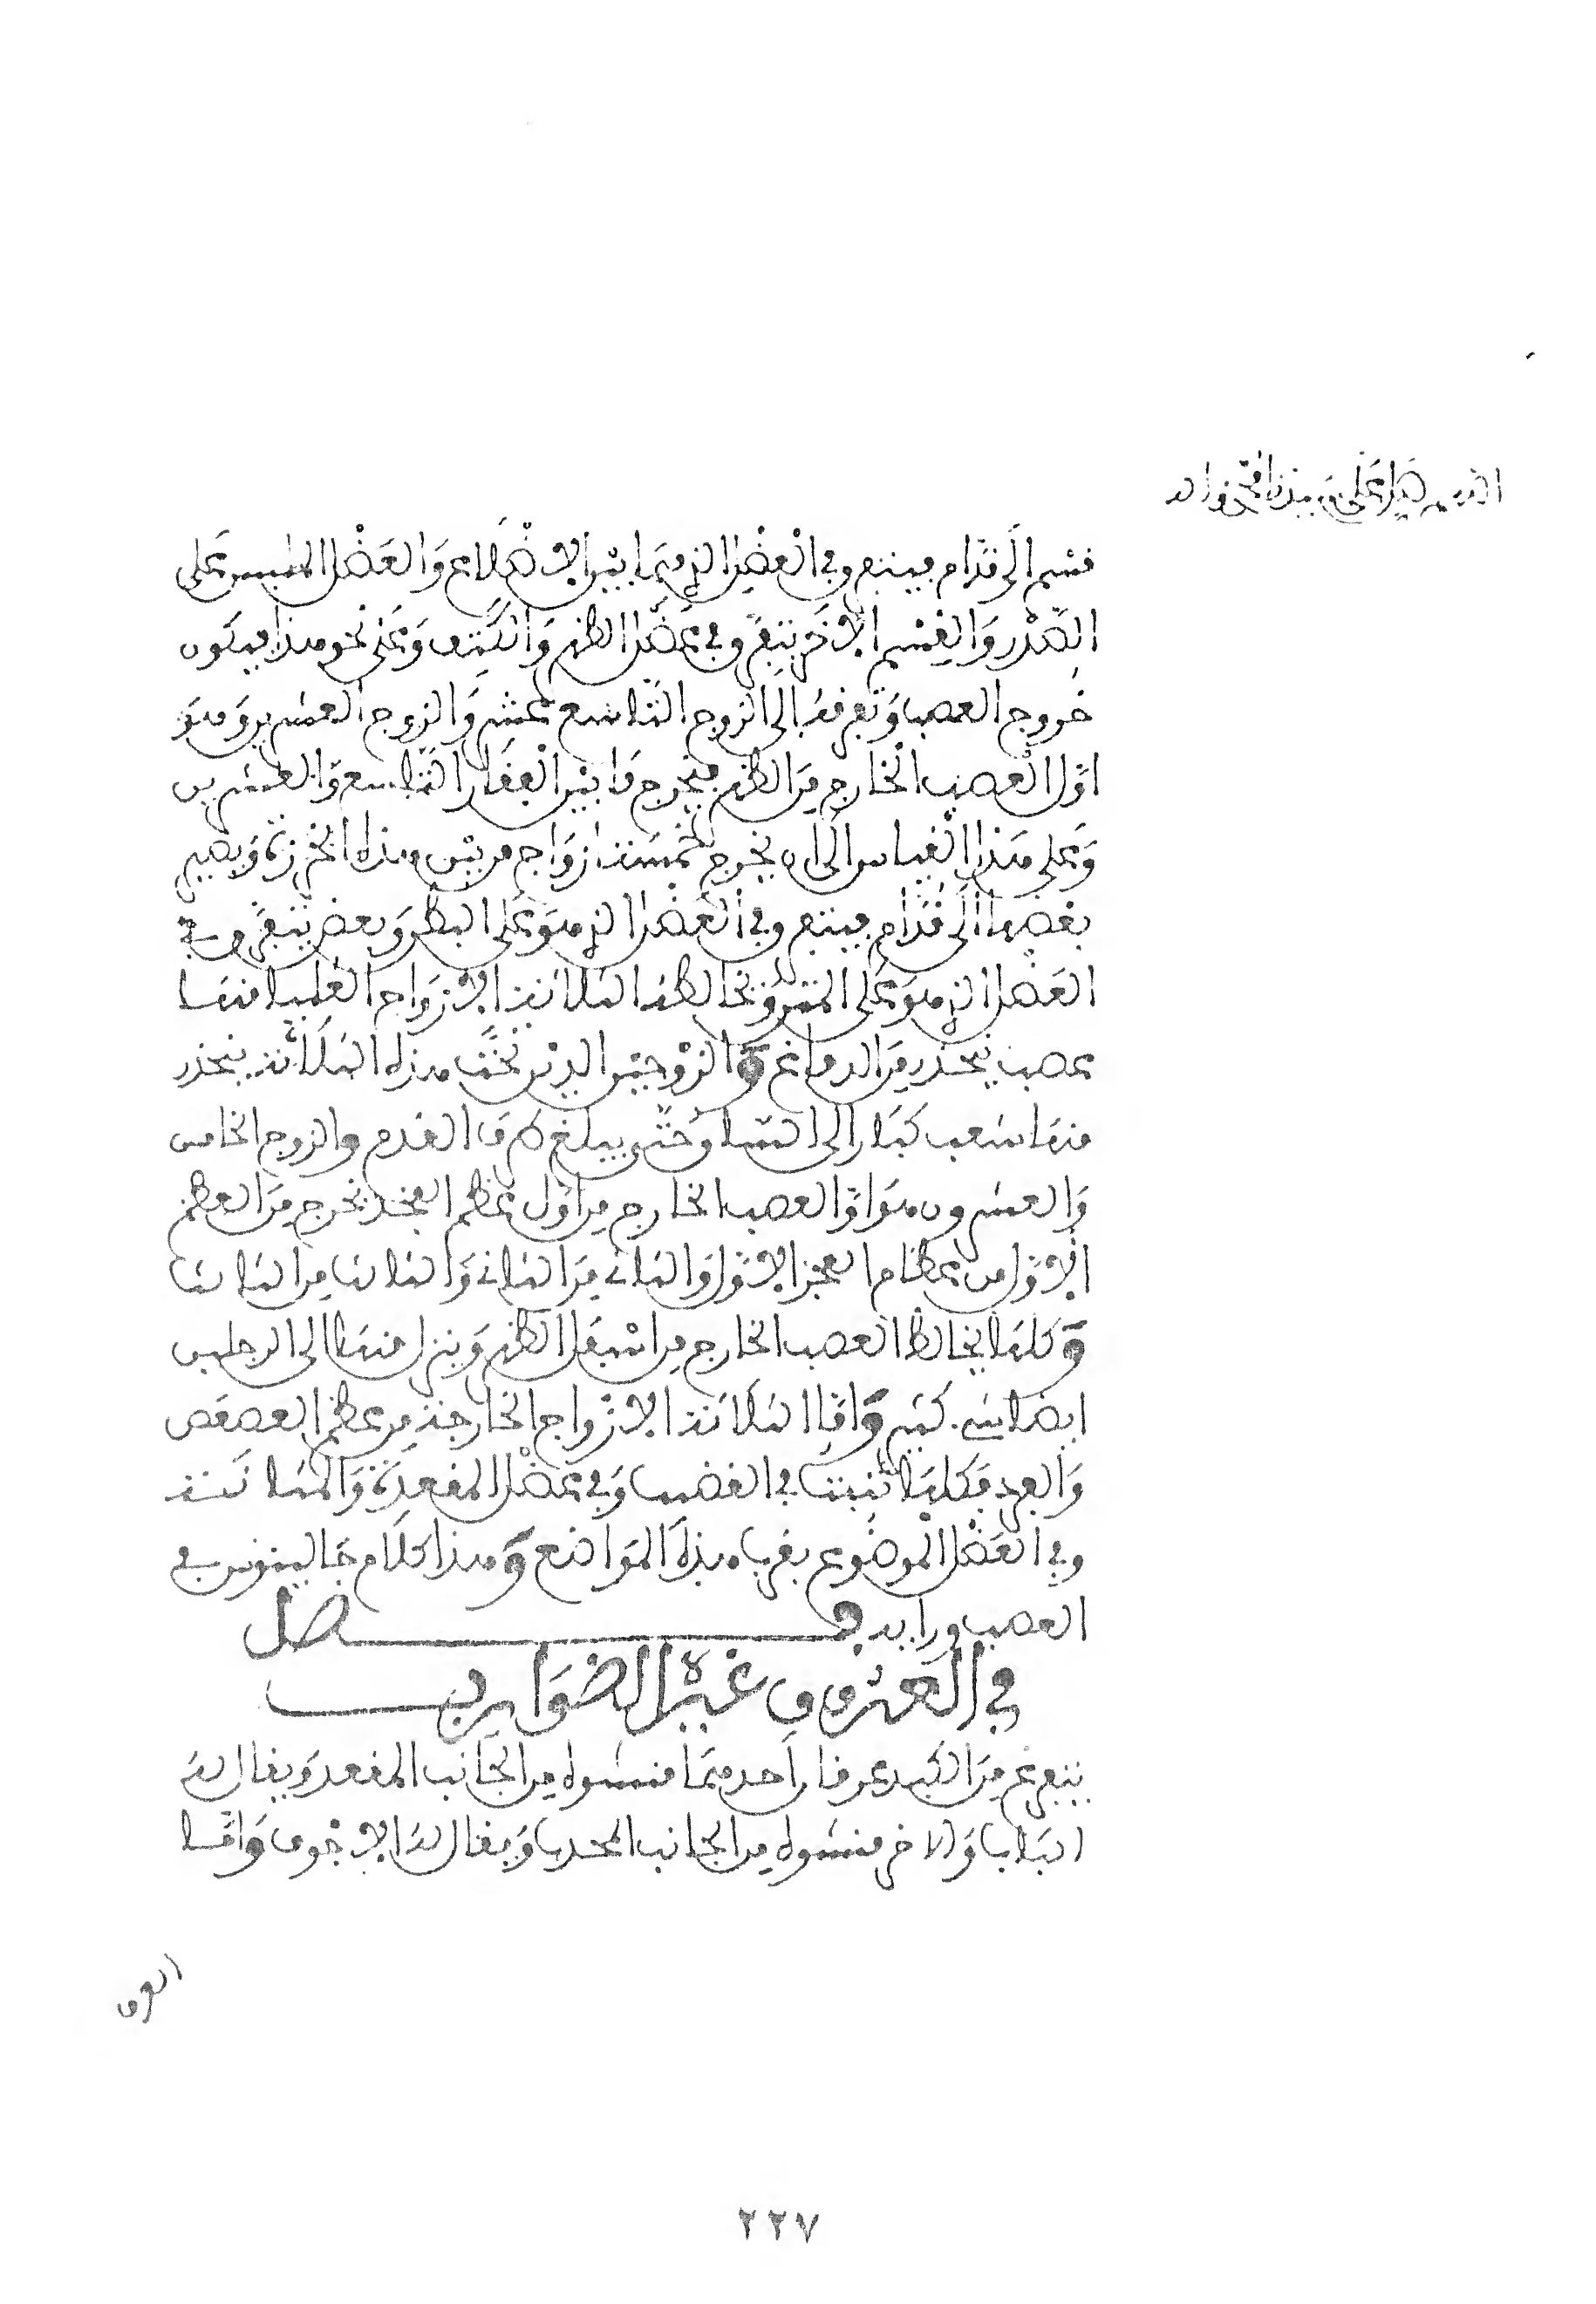 اللهم صل على سيدنا محمد وآله
قسم الى قدام فيتفرق في العضل الذي فيما بين الاضلاع والعضل الملبس على
الصدر والقسم الاخر يتفرق في عضل الظهر والكتف وعلى نحو هذا فيكون
خروج العصب وتفرقه الى الزوج التاسع عشر والزوج العشرين وهو
اول العصب الخارج من الظهر فيخرج ما بين الفقار التاسع والعشرين
وعلى هذا القياس الى ان يخرج خمسة ازواج من بين هذه الخرزة ويصير
بعضها الى قدام فيتفرق في العضل الذي هو على البطن وبعض يتفرق في
العضل الذي هو على المتن وتخالط هذه الثلاثة الازواج العليا منها
عصب ينحدر من الدماغ والزوجين الذين تحت هذه الثلاثة ينحدر
منها شعب كبار الى الساق حتى يبلغ طرف القدم والزوج الخامس
والعشرون هو اول العصب الخارج من اول عظم الفخذ تخرج من العظم
الاول من عظام العجز الاول والثاني من الثاني والثالث من الثالث
وكلها يخالط العصب الخارج من اسفل الظهر وينزل منها الى الرجلين
ايضا شيء كثير واما الثلاثة الازواج الخارجة من عظم العصعص
والفرد فكلها تنبث في القضيب وفي عضل المقعدة والمثانة
وفي العضل الموضوع بقرب هذه المواضع وهذا كلام جالينوس في
العصب ورايه فصل
في العروق غير الضوارب
يتفرع من الكبد عرقان احدهما منشوه من الجانب المقعر ويقال له
الباب والاخر منشوه من الجانب المحدب ويقال له الاجوف واما
العرق
٢٢٧